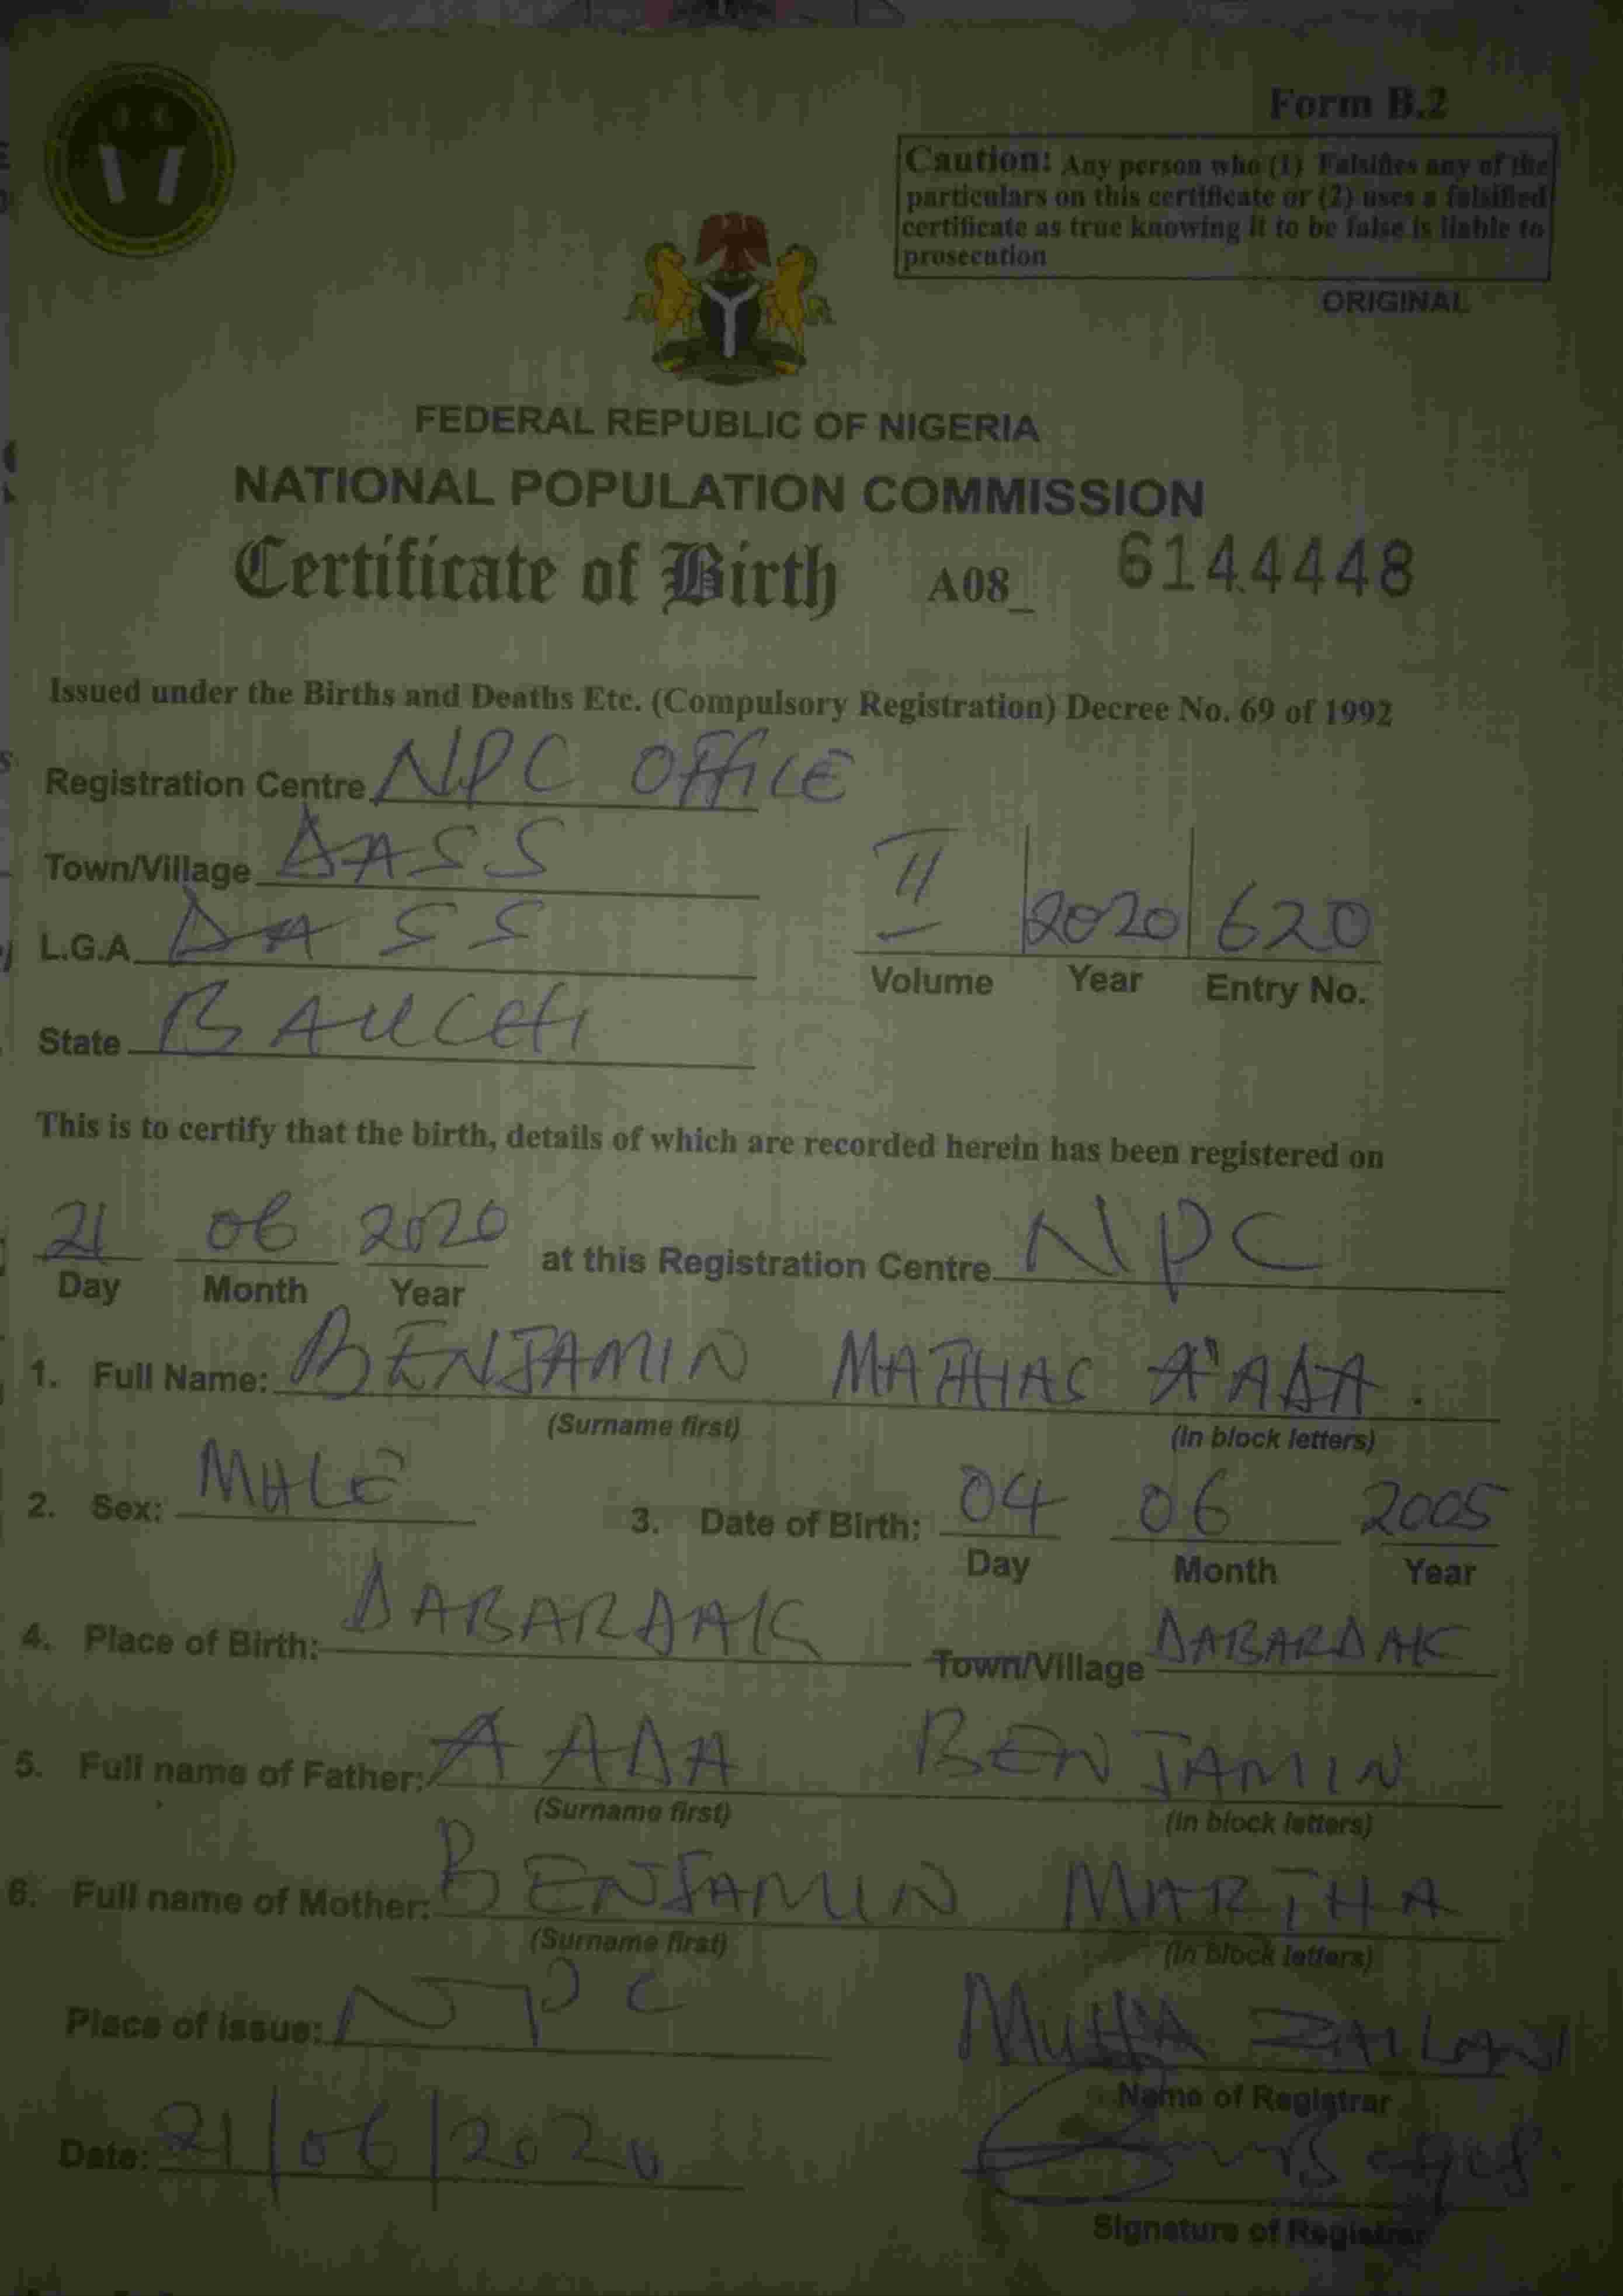 Form B.2
Caution: Any person who (1) Falsifies any of the
particulars on this certificate or (2) uses a falsified
certificate as true knowing it to be false is liable to
prosecution
ORIGINAL
FEDERAL REPUBLIC OF NIGERIA
NATIONAL POPULATION COMMISSION
Certificate of Birth A08_ 6144448
Issued under the Births and Deaths Etc. (Compulsory Registration) Decree No. 69 of 1992
Registration Centre NPC OFFICE
Town/Village DASS
L.G.A DASS
II 2020 620
Volume Year Entry No.
State BAUCHI
This is to certify that the birth, details of which are recorded herein has been registered on
21 06 2020 at this Registration Centre NPC
Day Month Year
1. Full Name: BENJAMIN MATHIAS A'ADA.
(Surname first) (in block letters)
2. Sex: MALE 3. Date of Birth: 04 06 2005
Day Month Year
4. Place of Birth: DABARDAK Town/Village DABARDAK
5. Full name of Father: AADA BENJAMIN
(Surname first) (in block letters)
6. Full name of Mother: BENJAMIN MARTHA
(Surname first) (in block letters)
Place of issue: NPC
Name of Registrar
Date: 21/06/2020
Signature of Registrar